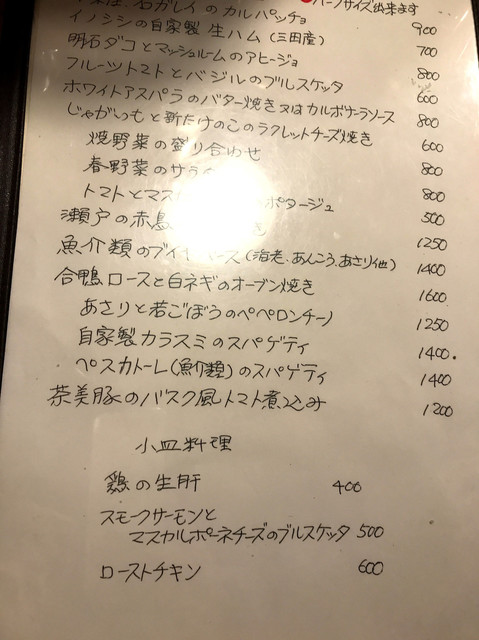 石ガレイのカルパッチョ ハーフサイズ出来ます
イノシシの自家製生ハム(三田産) 900
明石ダコとマッシュルームのアヒージョ 700
フルーツトマトとバジルのブルスケッタ 800
ホワイトアスパラのバター焼き又はカルボナーラソース 600
じゃがいもと新たけのこのラクレットチーズ焼き 800
焼野菜の盛り合わせ 600
春野菜のサラ 800
トマトとマス ポタージュ 800
瀬戸の赤 き 500
魚介類のブイヤベース(海老、あんこう、あさり他) 1250
合鴨ロースと白ネギのオーブン焼き 1400
あさりと若ごぼうのペペロンチーノ 1600
自家製カラスミのスパゲティ 1250
ペスカトーレ(魚介類)のスパゲティ 1400.
茶美豚のバスク風トマト煮込み 1400
1200
小皿料理
鶏の生肝 400
スモークサーモンと
マスカルポーネチーズのブルスケッタ 500
ローストチキン 600